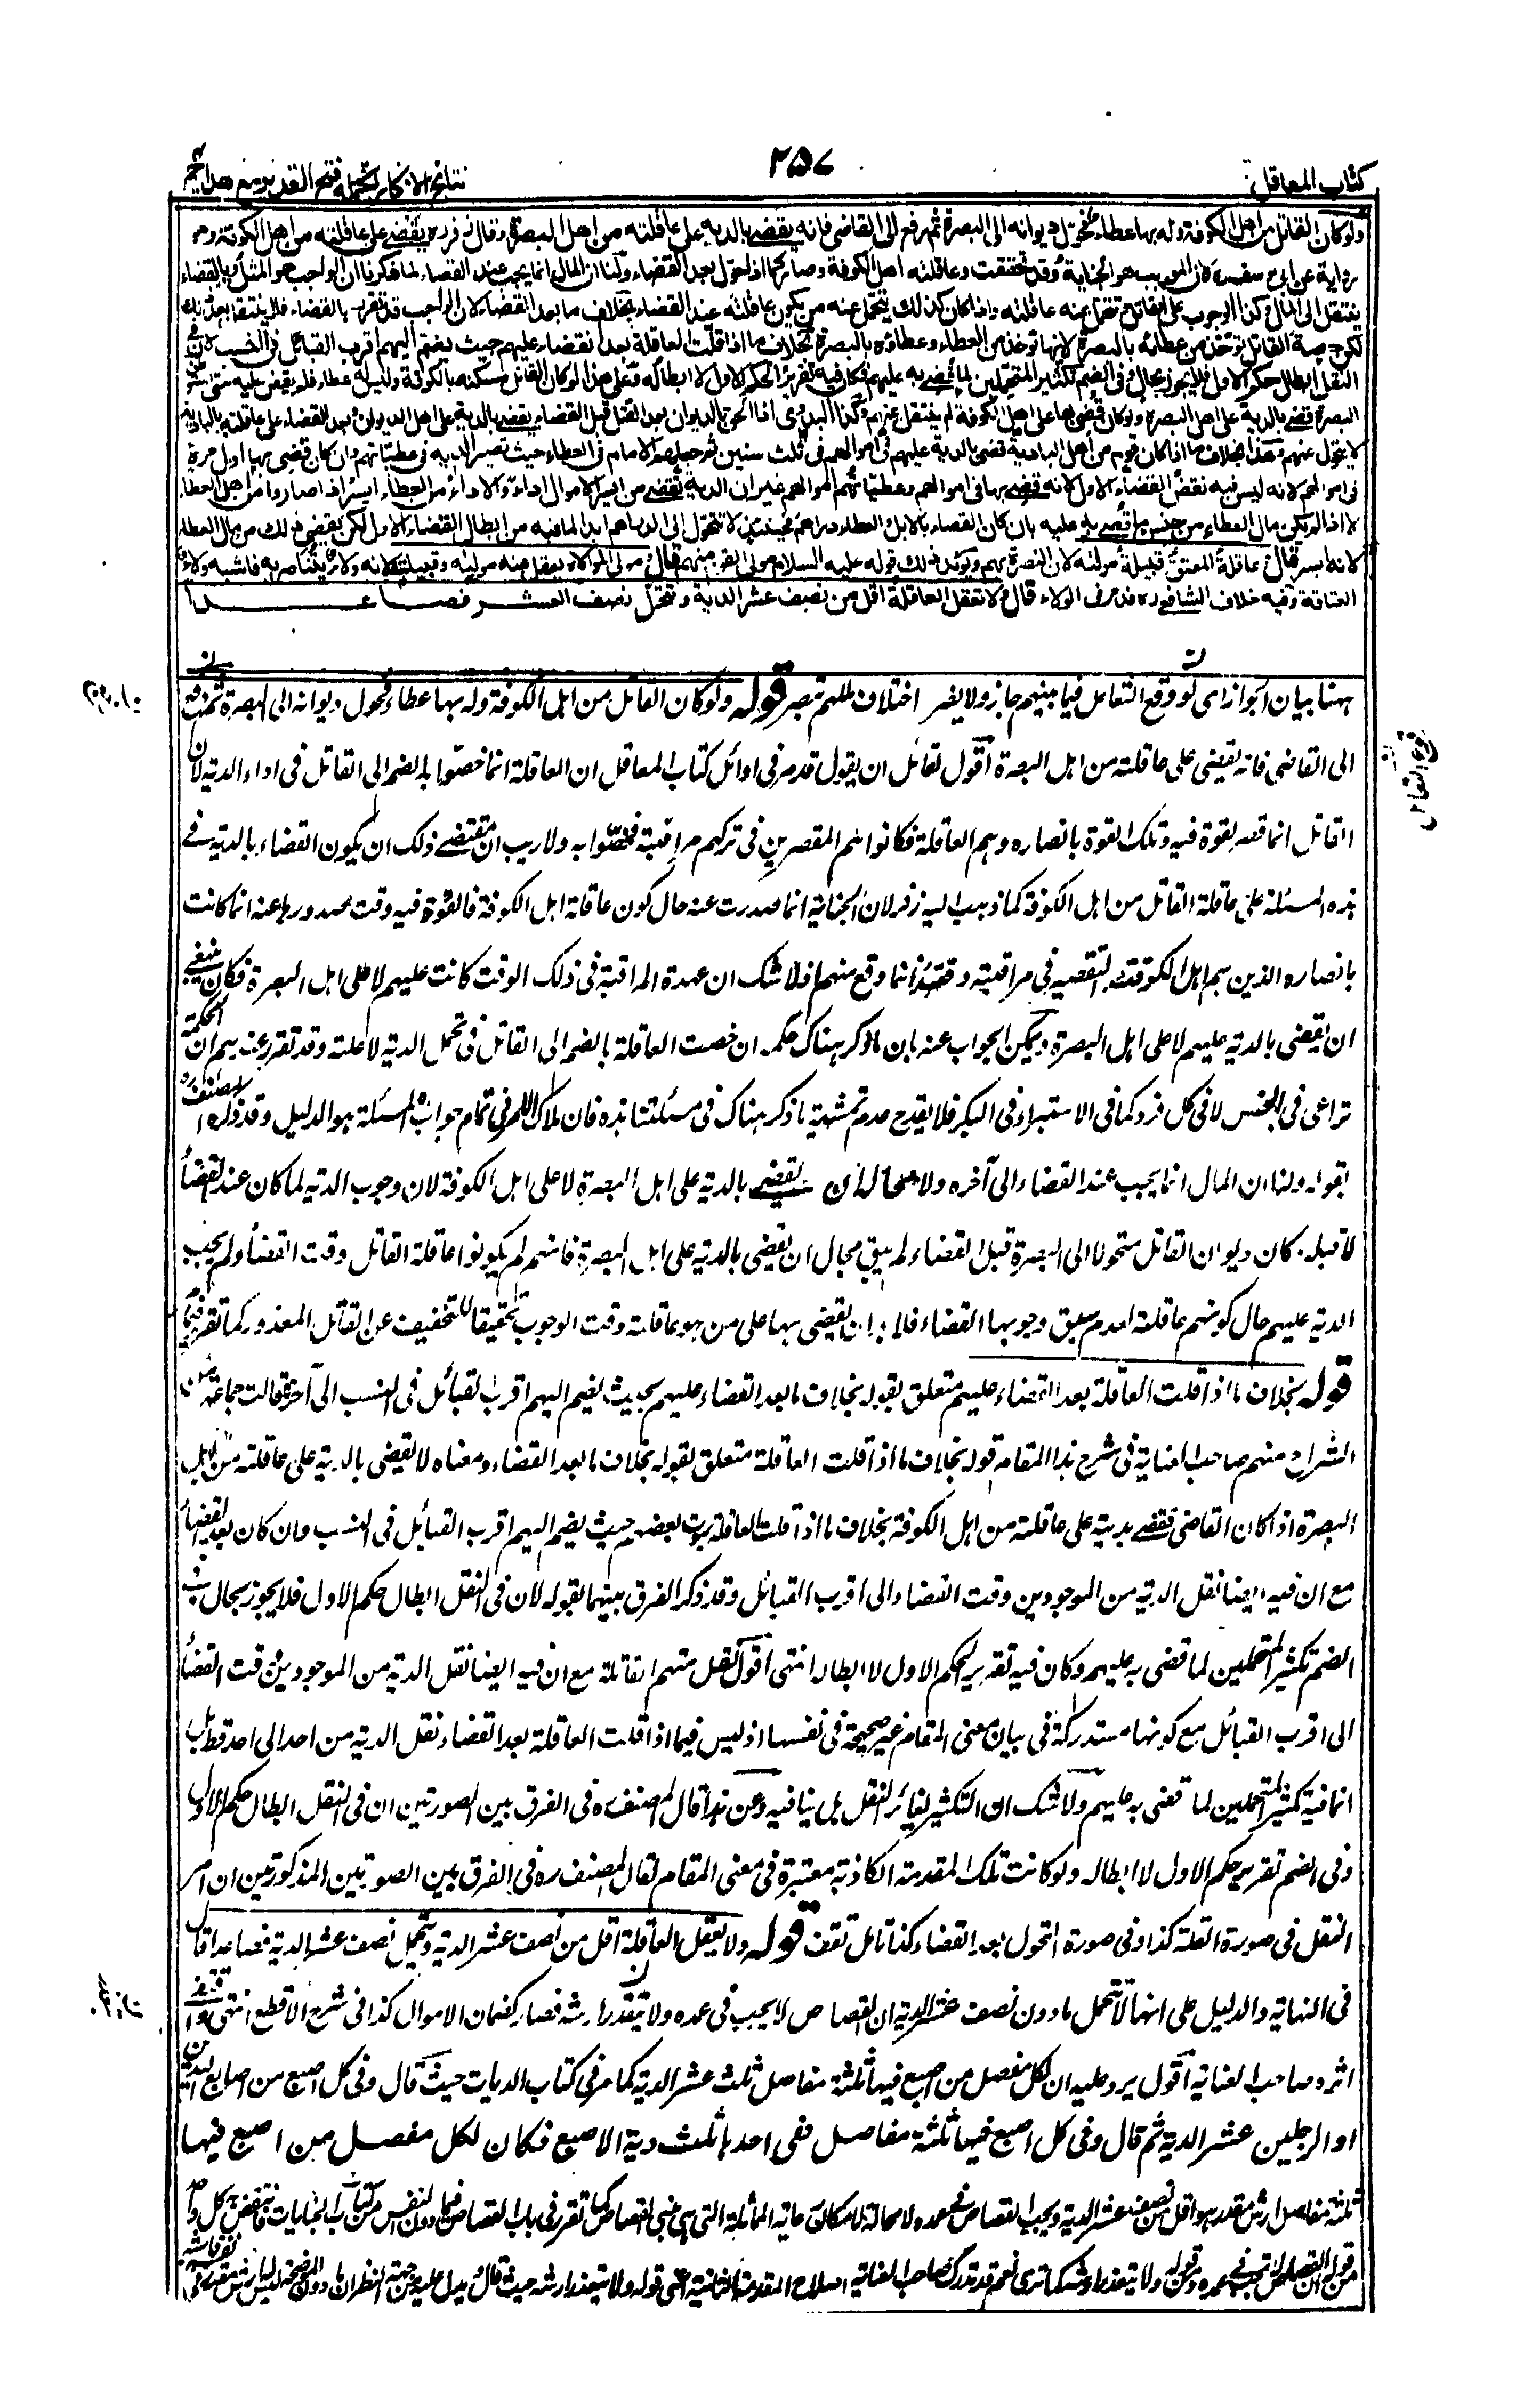 كتاب المعاقل
٢٥٧
نتائج الافكار تكملة فتح القدير مع هداية
ولو كان القاتل من اهل الكوفة وله بها عطاء فحول ديوانه الى البصرة ثم رفع الى القاضي فانه يقضي بالدية على عاقلته من اهل البصرة وقال زفر ره يقضي على عاقلته من اهل الكوفة وهو
رواية عن ابي يوسف ره لان الموجب هو الجناية وقد تحققت وعاقلته اهل الكوفة وصار كما اذا حول بعد القضاء ولنا ان المال انما يجب عند القضاء لما ذكرنا ان الواجب هو المثل وبالقضاء
ينتقل الى المال وكذا الوجوب على القاتل وتتحمل عنه عاقلته واذا كان كذلك يتحمل عنه من يكون عاقلته عند القضاء بخلاف ما بعد القضاء لان الواجب قد تقرر بالقضاء فلا ينتقل بعد ذلك
لكن حصة القاتل تؤخذ من عطائه بالبصرة لانها تؤخذ من العطاء وعطاؤه بالبصرة بخلاف ما اذا قلت العاقلة بعد القضاء عليهم حيث يضم اليهم اقرب القبائل في النسب لان في
النقل ابطال حكم الاول فلا يجوز بحال وفي الضم تكثير المتحملين لما قضي به عليهم فكان فيه تقرير الحكم الاول لا ابطاله وعلى هذا لو كان القاتل مسكنه بالكوفة وليس له عطاء فلم يقض عليه حتى استوطن
البصرة قضي بالدية على اهل البصرة ولو كان قضي بها على اهل الكوفة لم ينتقل عنهم وكذا البدوي اذا الحق بالديوان بعد القتل قبل القضاء يقضي بالدية على اهل الديوان وبعد القضاء على عاقلته بالبادية
لا يتحول عنهم وهذا بخلاف ما اذا كان قوم من اهل البادية قضي بالدية عليهم في اموالهم في ثلث سنين ثم جعلهم الامام في العطاء حيث تصير الدية في عطياتهم وان كان قضي بها اول مرة
في اموالهم لانه ليس فيه نقض القضاء الاول لانه قضي بها في اموالهم وعطياتهم اموالهم غير ان الدية تقضى من ايسر الاموال اداء والاداء من العطاء ايسر اذا صاروا من اهل العطاء
الا اذا لم يكن مال العطاء من جنس ما قضي به عليه بان كان القضاء بالابل والعطاء دراهم فحينئذ لا تتحول الى الدراهم ابدا لما فيه من ابطال القضاء الاول لكن يقضى ذلك من مال العطاء
لانه ايسر قال وعاقلة المعتق قبيلة مولاه لان النصرة بهم ويؤيد ذلك قوله عليه السلام مولى القوم منهم قال ومولى الموالاة يعقل عنه مولاه وقبيلته لانه ولاء يتناصر به فاشبه ولاء
العتاقة وفيه خلاف الشافعي ره وقد مر في الولاء قال ولا تعقل العاقلة اقل من نصف عشر الدية وتتحمل نصف العشر فصاعدا
ههنا بيان الجواز اى لو وقع التعاقل فيما بينهم جاز ولا يضر اختلاف مللهم تبصر قوله ولو كان القاتل من اهل الكوفة وله بها عطاء فحول ديوانه الى البصرة ثم رفع
الى القاضي فانه يقضي على عاقلته من اهل البصرة اقول لقائل ان يقول قد مر في اوائل كتاب المعاقل ان العاقلة انما خصوا بالضم الى القاتل في اداء الدية لان
القاتل انما قصر لقوة فيه وتلك القوة بانصاره وهم العاقلة فكانوا هم المقصرين في تركهم مراقبته فخصوا به ولا ريب ان مقتضى ذلك ان يكون القضاء بالدية في
هذه المسئلة على عاقلة القاتل من اهل الكوفة كما ذهب اليه زفر لان الجناية انما صدرت عنه حال كون عاقلته اهل الكوفة فالقوة فيه وقت صدورها عنه انما كانت
بانصاره الذين هم اهل الكوفة والتقصير في مراقبته وقتئذ انما وقع منهم اذ لا شك ان عهدة المراقبة في ذلك الوقت كانت عليهم لا على اهل البصرة فكان ينبغي
ان يقضي بالدية عليهم لا على اهل البصرة ويمكن الجواب عنه بان ما ذكر هناك حكمة ان خصت العاقلة بالضم الى القاتل في تحمل الدية لا علته وقد تقرر عندهم ان الحكمة
تراعى في الجنس لا في كل فرد كما في الاستبراء في البكر فلا يقدح عدم تمشية ما ذكر هناك في مسئلتنا هذه فان ملاك الامر في تمام جواب المسئلة هو الدليل وقد ذكره المصنف ره
بقوله ولنا ان المال انما يجب عند القضاء الى آخره ولا محالة ان يقضي بالدية على اهل البصرة لا على اهل الكوفة لان وجوب الدية لما كان عند القضاء
لا قبله كان ديوان القاتل متحولا الى البصرة قبل القضاء لم يبق مجال ان يقضي بالدية على اهل البصرة فانهم لم يكونوا عاقلة القاتل وقت القضاء ولم يجب
الدية عليهم حال كونهم عاقلة لعدم سبق وجوبها القضاء فالا بد ان يقضي بها على من هو عاقلته وقت الوجوب تحقيقا للتخفيف عن القاتل المعذور كما تقرر فيما مر
قوله بخلاف ما اذا قلت العاقلة بعد القضاء عليهم متعلق بقوله بخلاف ما بعد القضاء عليهم بحيث يضم اليهم اقرب القبائل في النسب الى آخره قالت جماعة من
الشراح منهم صاحب العناية في شرح هذا المقام قوله بخلاف ما اذا قلت العاقلة متعلق بقوله بخلاف ما بعد القضاء ومعناه لا يقضي بالدية على عاقلته من اهل
البصرة اذا كان القاضي قضى بديته على عاقلته من اهل الكوفة بخلاف ما اذا قلت العاقلة بموت بعضهم حيث يضم اليهم اقرب القبائل في النسب وان كان بعد القضاء
مع ان فيه ايضا نقل الدية من الموجودين وقت القضاء الى اقرب القبائل وقد ذكر الفرق بينهما بقوله لان في النقل ابطال حكم الاول فلا يجوز بحال وفي
الضم تكثير المتحملين لما قضى به عليهم وكان فيه تقرير الحكم الاول لا ابطاله انتهى اقول نقل منهم القائلة مع ان فيه ايضا نقل الدية من الموجودين وقت القضاء
الى اقرب القبائل مع كونها مستدركة في بيان معنى المقام غير صحيحة في نفسها اذ ليس فيما اذا قلت العاقلة بعد القضاء نقل الدية من احد الى احد قط بل
انما فيه تكثير المتحملين لما قضى به عليهم ولا شك ان التكثير يغاير النقل بل ينافيه وعن هذا قال المصنف ره في الفرق بين الصورتين ان في النقل ابطال حكم الاول
وفي الضم تقرير حكم الاول لا ابطاله ولو كانت تلك المقدمة الكاذبة معتبرة في معنى المقام لقال المصنف ره في الفرق بين الصورتين المذكورتين ان امر
النقل في صورة القلة كذا وفي صورة التحول بعد القضاء كذا تامل تقف قوله ولا يعقل العاقلة اقل من نصف عشر الدية ويتحمل نصف عشر الدية فصاعدا قال
في النهاية والدليل على انها لا تتحمل ما دون نصف عشر الدية ان القصاص لا يجب في عمده ولا يتقدر ارشه فصار كضمان الاموال كذا في شرح الاقطع انتهى واقتفى
اثره صاحب العناية اقول يرد عليه ان لكل مفصل من اصبع فيها ثلثة مفاصل ثلث عشر الدية كما مر في كتاب الديات حيث قال وفي كل اصبع من اصابع اليدين
او الرجلين عشر الدية ثم قال وفي كل اصبع فيها ثلثة مفاصل ففي احدها ثلث دية الاصبع فكان لكل مفصل من اصبع فيها
ثلثة مفاصل ارش مقدر هو اقل من نصف عشر الدية ويجب القصاص في عمده لا محالة لامكان رعاية المماثلة التي هي مبنى القصاص كما تقرر في باب القصاص فيما دون النفس من كتاب الجنايات فانتقض كل واحد
من قوله ان القصاص لا يجب في عمده وقوله ولا يتقدر ارشه كما ترى نعم قد تدارك صاحب العناية اصلاح المقدمة الثانية اعني قوله ولا يتقدر ارشه حيث قال